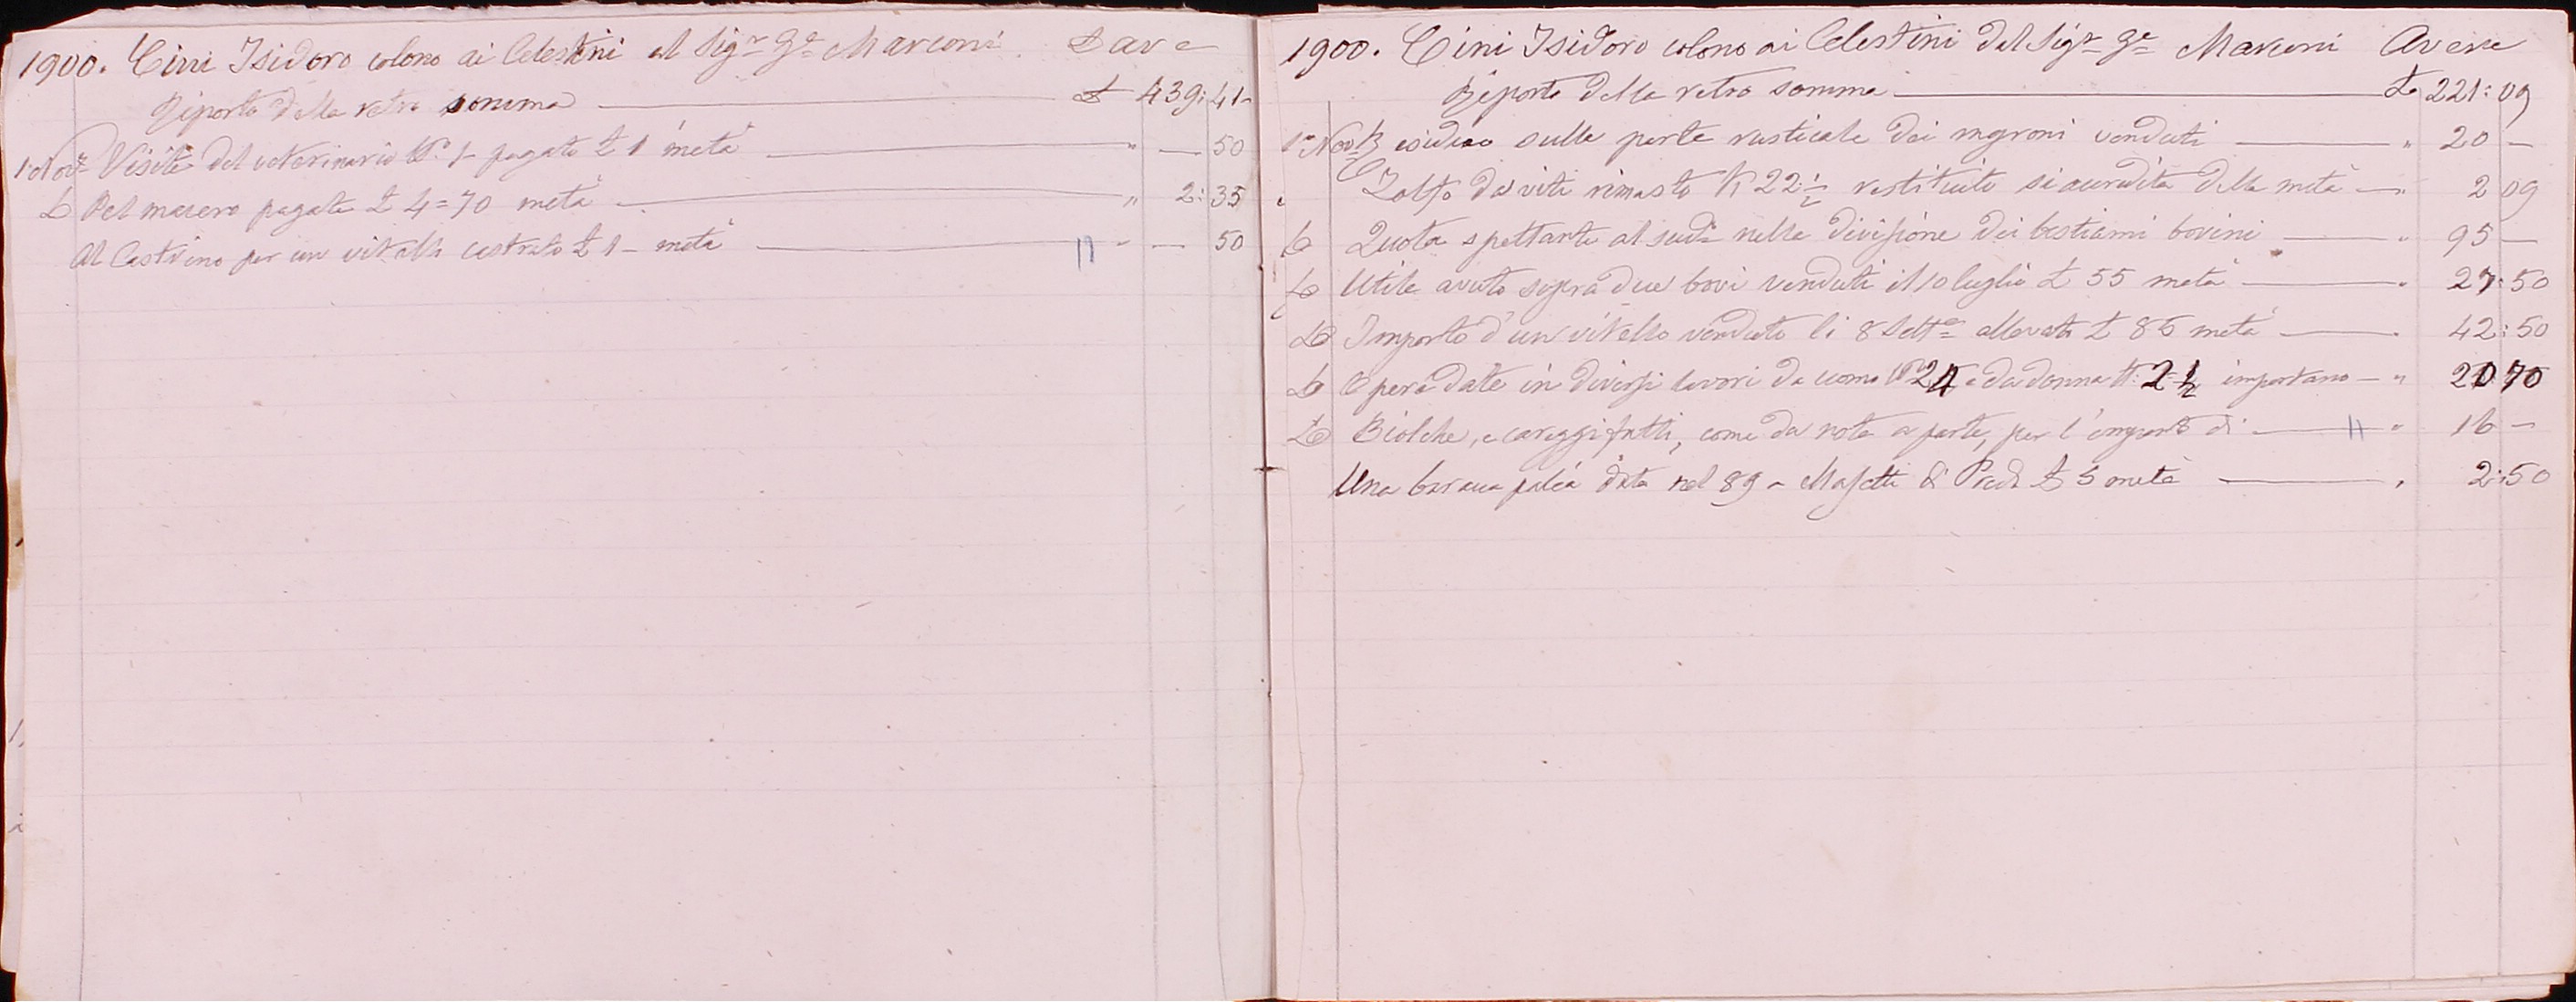 1900. Cini Isidoro colono ai Celestini al Sigr Ge Marconi Dare
Riporto della retro somma £ 439:41
1 Nov. Visite del veterinario N. 1 pagato £ 1 metà " — 50
D Pel macero pagato £ 4=70 metà " 2:35
Al Castrino per un vitello castrato £ 1 - metà " — 50
1900. Cini Isidoro colono ai Celestini del Sigr Ge Marconi Avere
Riporto della retro somma £ 221:09
1 Nov Residuo sulla parte rusticale dei mgroni venduti " 20 —
Zolfo da viti rimasto K 22 1/2 restituito si accredita della metà " 2 09
D Quota spettante al sudo nella divisione dei bestiami bovini " 95 —
D Utile avuto sopra due bovi venduti il 10 luglio £ 55 metà " 27:50
D Importo d'un vitello venduto li 8 Sette allevato £ 85 metà " 42:50
D Opera date in diversi lavori da uomo N 24 e da donna N. 2 1/2 importano " 20 70
D Biolche, e careggi fatti, come da nota a parte, per l'importo di " 16 —
Una baracca paléa data nel 89 a £ 5 metà " 2:50